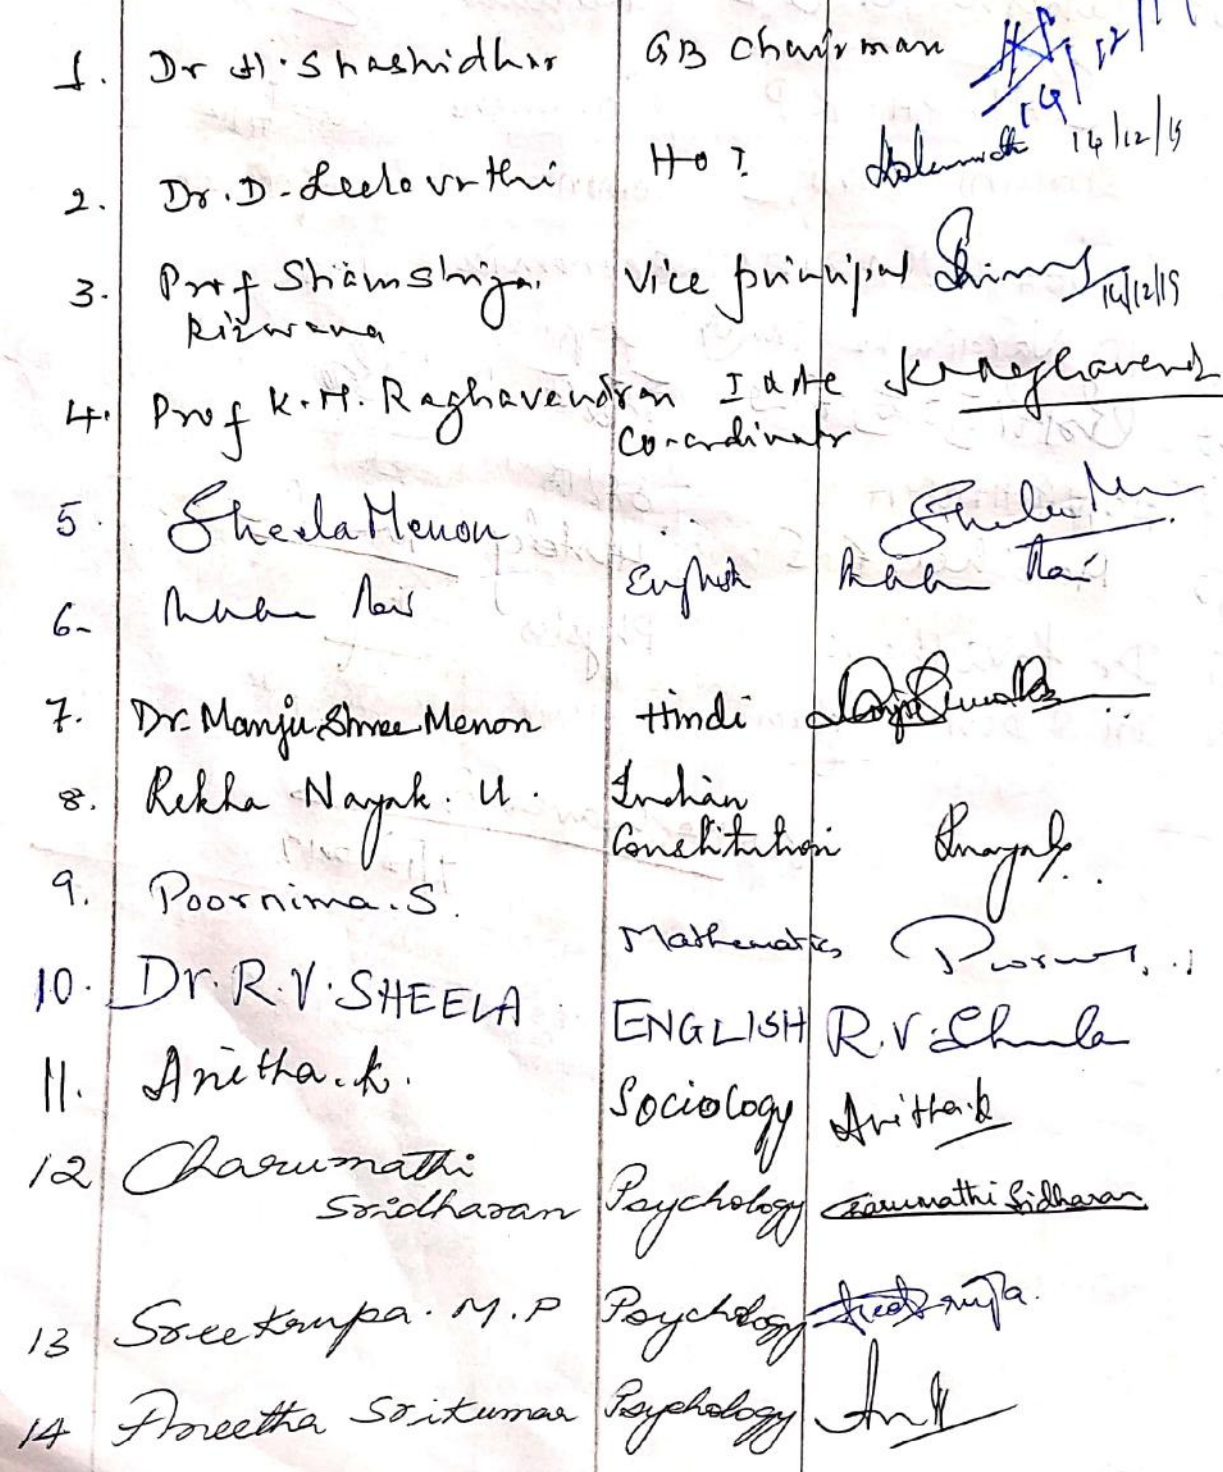 1. Dr H. Shashidhar GB Chairman 14/12/19
2. Dr. D. Leelavathi HOI 14/12/19
3. Prof Shamshiya Vice principal 14/12/19
Rizwana
4. Prof K.M. Raghavendran I & AE K M Raghavend
Co-ordinator
5. Sheela Menon Sheela Men
6- English
7. Dr. Manju Shree Menon Hindi
8. Rekha Nayak. U. Indian
Constitution Rnayak
9. Poornima. S.
Mathematics
10. Dr. R. V. SHEELA ENGLISH R. V. Sheela
11. Anitha. K. Sociology Anitha. k
12 Charumathi
Sridharan Psychology Charumathi Sridharan
13 Sreekrupa. M. P Psychology Sreekrupa.
14 Preetha Srikumar Psychology